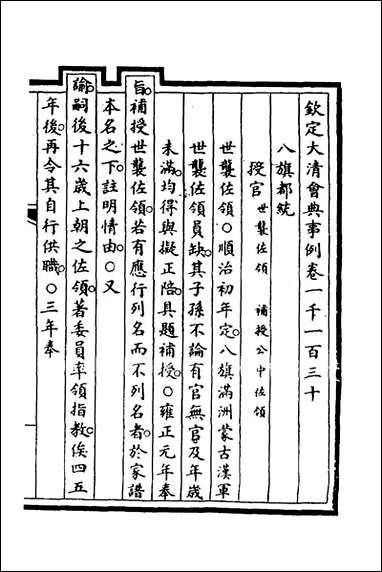 欽定大清會典事例卷一千一百三十
八旗都統
授官 世襲佐領 補授公中佐領
世襲佐領○順治初年定。八旗滿洲蒙古漢軍
世襲佐領員缺。其子孫不論有官無官及年歲
未滿。均得與擬正陪。具題補授。○雍正元年奉
旨。補授世襲佐領。若有應行列名而不列名者。於家譜
本名之下。註明情由。○又
諭。嗣後十六歲上朝之佐領。著委員率領指教。俟四五
年後。再令其自行供職。○三年奉